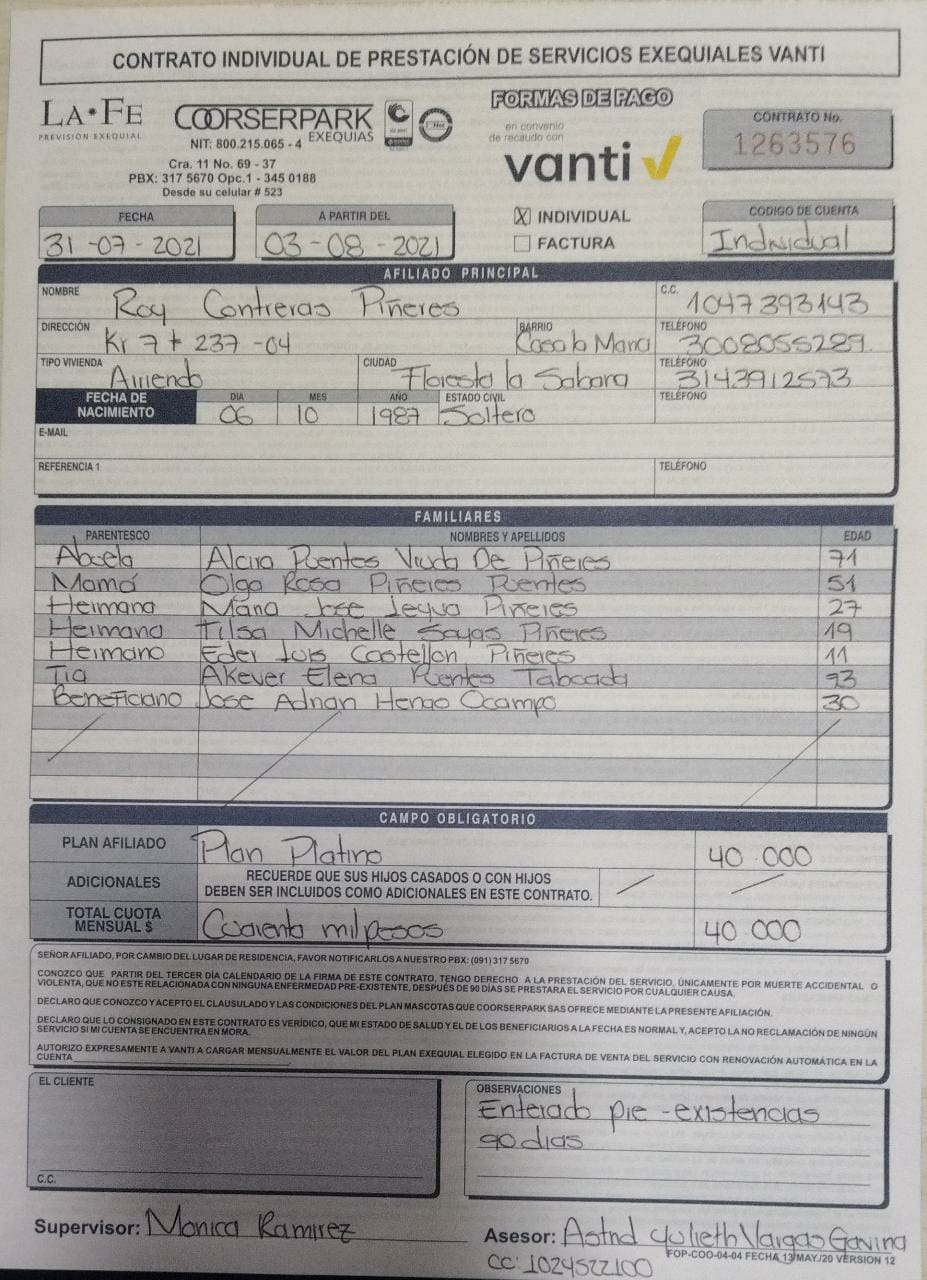 CONTRATO INDIVIDUAL DE PRESTACIÓN DE SERVICIOS EXEQUIALES VANTI
LA•FE
PREVISIÓN EXEQUIAL
COORSERPARK
EXEQUIAS
NIT: 800.215.065 - 4
Cra. 11 No. 69 - 37
PBX: 317 5670 Opc.1 - 345 0188
Desde su celular # 523
FORMAS DE PAGO
en convenio
de recaudo con
vanti
CONTRATO No.
1263576
FECHA
31-07-2021
A PARTIR DEL
03-08-2021
X INDIVIDUAL
FACTURA
CODIGO DE CUENTA
Individual
AFILIADO PRINCIPAL
NOMBRE Roy Contreras Piñeres C.C. 1047393143
DIRECCIÓN Kr 7 # 237-04 BARRIO Casa la Maria TELÉFONO 3008055289
TIPO VIVIENDA Arriendo CIUDAD Floresta la Sabana TELÉFONO 3143912573
FECHA DE NACIMIENTO DIA 06 MES 10 AÑO 1987 ESTADO CIVIL Soltero TELÉFONO
E-MAIL
REFERENCIA 1 TELÉFONO
FAMILIARES
PARENTESCO NOMBRES Y APELLIDOS EDAD
Abuela Alcira Puentes Viuda De Piñeres 71
Mamá Olga Rosa Piñeres Puentes 51
Hermana Maria Jose Leyva Piñeres 27
Hermana Tilsa Michelle Sayas Piñeres 19
Hermano Eder Luis Castellon Piñeres 11
Tia Akever Elena Puentes Taboada 73
Beneficiario Jose Adrian Henao Ocampo 30
CAMPO OBLIGATORIO
PLAN AFILIADO Plan Platino 40.000
ADICIONALES RECUERDE QUE SUS HIJOS CASADOS O CON HIJOS
DEBEN SER INCLUIDOS COMO ADICIONALES EN ESTE CONTRATO.
TOTAL CUOTA MENSUAL $ Cuarenta mil pesos 40.000
SEÑOR AFILIADO, POR CAMBIO DEL LUGAR DE RESIDENCIA, FAVOR NOTIFICARLOS A NUESTRO PBX: (091) 317 5670
CONOZCO QUE PARTIR DEL TERCER DÍA CALENDARIO DE LA FIRMA DE ESTE CONTRATO, TENGO DERECHO A LA PRESTACIÓN DEL SERVICIO, ÚNICAMENTE POR MUERTE ACCIDENTAL O
VIOLENTA, QUE NO ESTE RELACIONADA CON NINGUNA ENFERMEDAD PRE-EXISTENTE, DESPUÉS DE 90 DÍAS SE PRESTARA EL SERVICIO POR CUALQUIER CAUSA.
DECLARO QUE CONOZCO Y ACEPTO EL CLAUSULADO Y LAS CONDICIONES DEL PLAN MASCOTAS QUE COORSERPARK SAS OFRECE MEDIANTE LA PRESENTE AFILIACIÓN.
DECLARO QUE LO CONSIGNADO EN ESTE CONTRATO ES VERÍDICO, QUE MI ESTADO DE SALUD Y EL DE LOS BENEFICIARIOS A LA FECHA ES NORMAL Y, ACEPTO LA NO RECLAMACIÓN DE NINGÚN
SERVICIO SI MI CUENTA SE ENCUENTRA EN MORA.
AUTORIZO EXPRESAMENTE A VANTI A CARGAR MENSUALMENTE EL VALOR DEL PLAN EXEQUIAL ELEGIDO EN LA FACTURA DE VENTA DEL SERVICIO CON RENOVACIÓN AUTOMÁTICA EN LA
CUENTA
EL CLIENTE
C.C.
OBSERVACIONES
Enterado pre-existencias
90 dias
Supervisor: Monica Ramirez
Asesor: Astrid Yulieth Vargas Gavina
CC: 1024522100
FOP-COO-04-04 FECHA 13/MAY./20 VERSION 12